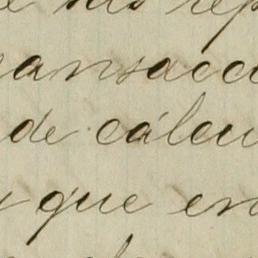 e sus rep
ansacci
de cálcu
que en